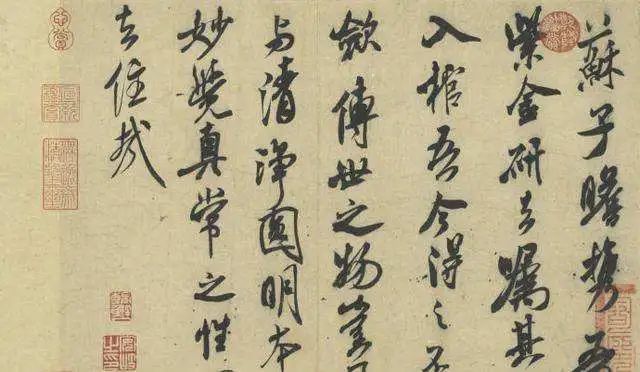 蘇子瞻携吾
紫金研去嘱其
入棺吾今得之不
欲傳世之物豈可
与清淨圓明本
妙覺真常之性
去住哉